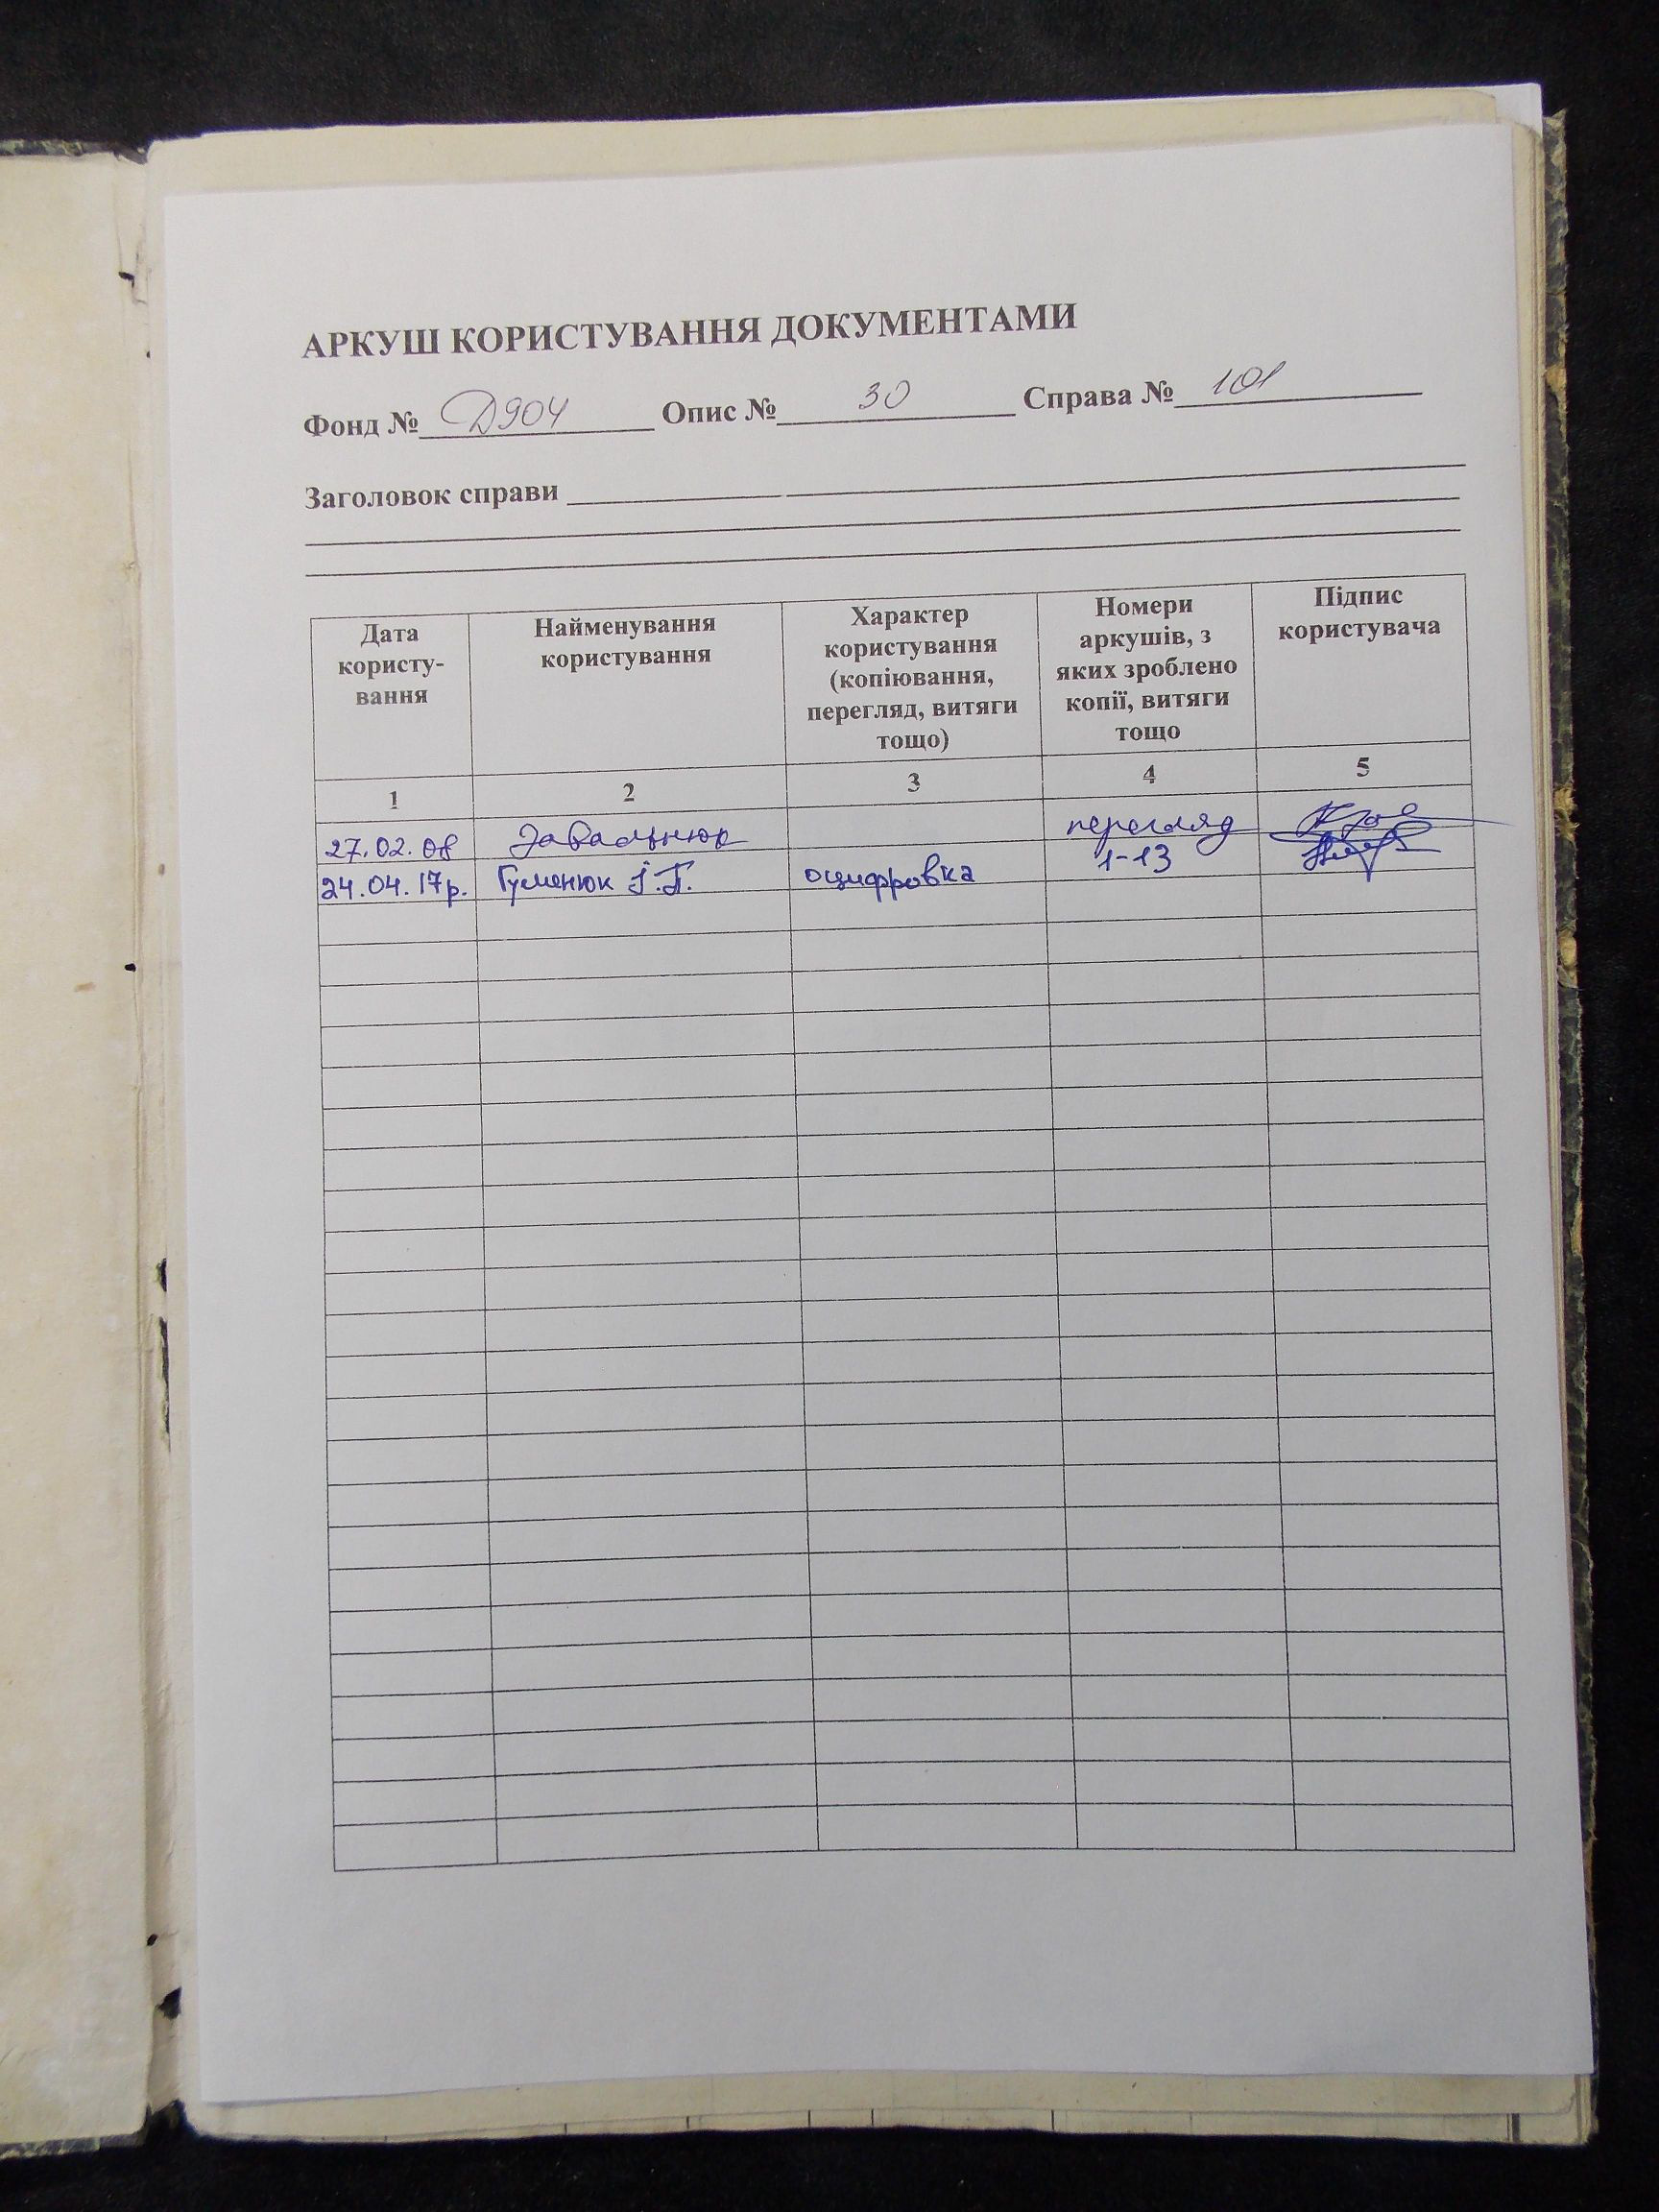 АРКУШ КОРИСТУВАННЯ ДОКУМЕНТАМИ
Фонд № Д904 Опис № 30 Справа № 101
Заголовок справи
Дата користу-вання
Найменування користування
Характер користування (копіювання, перегляд, витяги тощо)
Номери аркушів, з яких зроблено копії, витяги тощо
Підпис користувача
1 2 3 4 5
27.02.08 Завальнюк перегляд
24.04.17р. Гуменюк І.П. оцифровка 1-13